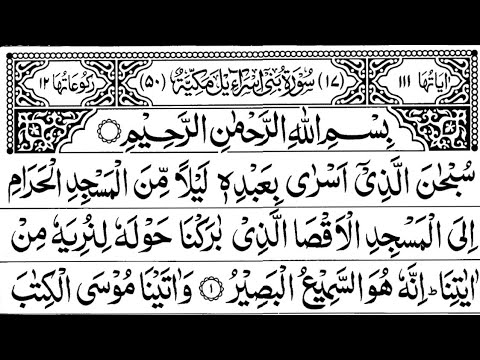 اٰیَاتُهَا ١١١ (١٧) سُوْرَةُ بَنِیْۤ اِسْرَآءِیْلَ مَكِّیَّةٌ (٥٠) رُكُوْعَاتُهَا ١٢
بِسْمِ اللّٰهِ الرَّحْمٰنِ الرَّحِیْمِ
سُبْحٰنَ الَّذِیْۤ اَسْرٰی بِعَبْدِهٖ لَیْلًا مِّنَ الْمَسْجِدِ الْحَرَامِ
اِلَی الْمَسْجِدِ الْاَقْصَا الَّذِیْ بٰرَكْنَا حَوْلَهٗ لِنُرِیَهٗ مِنْ
اٰیٰتِنَا ؕ اِنَّهٗ هُوَ السَّمِیْعُ الْبَصِیْرُ ۝١ وَ اٰتَیْنَا مُوْسَی الْكِتٰبَ